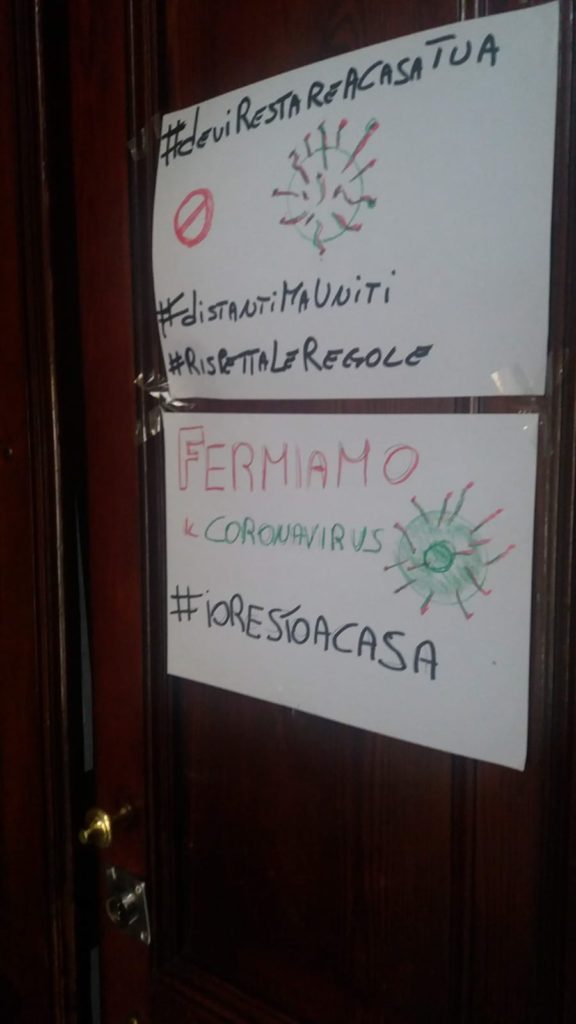 #deviRestareAcasaTua
#distantiMaUniti
#RispettaLeRegole
FERMIAMO
IL CORONAVIRUS
#iORESTOACASA